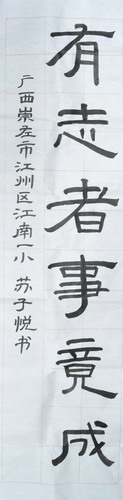 有志者事竟成
广西崇左市江州区江南一小 苏子悦书